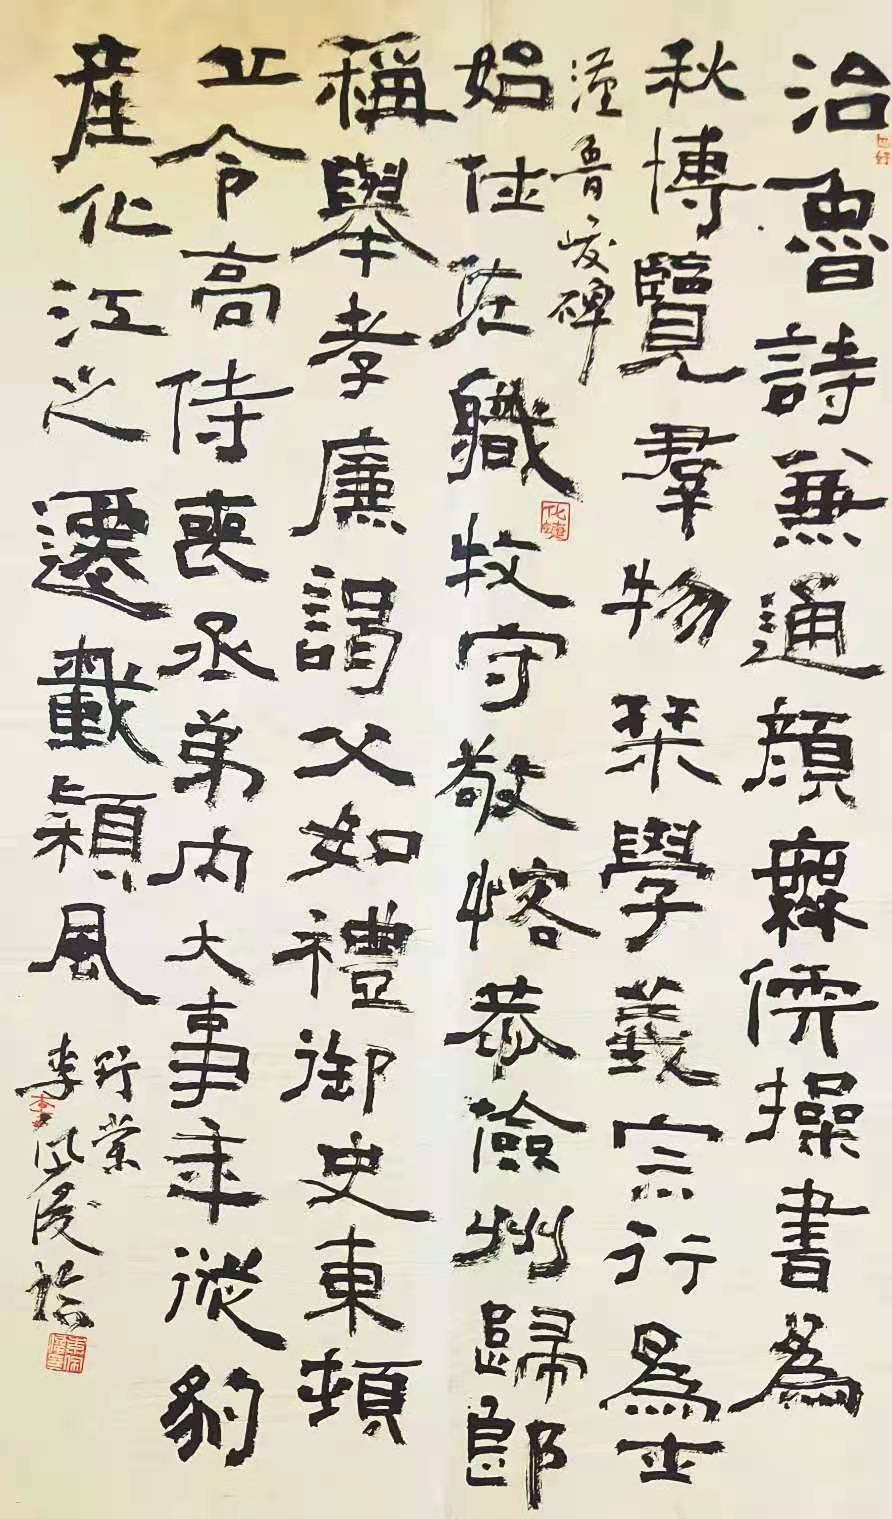 治魯詩兼通顏氏儒操書為
秋博覽羣物栞學義宗行為士
漢魯峻碑
始仕佐職牧守敬恪恭儉州歸郎
稱舉孝廉謁父如禮御史東頓
丘令高侍喪丞弟内大事年從豹
產化江之遷載穎風
李